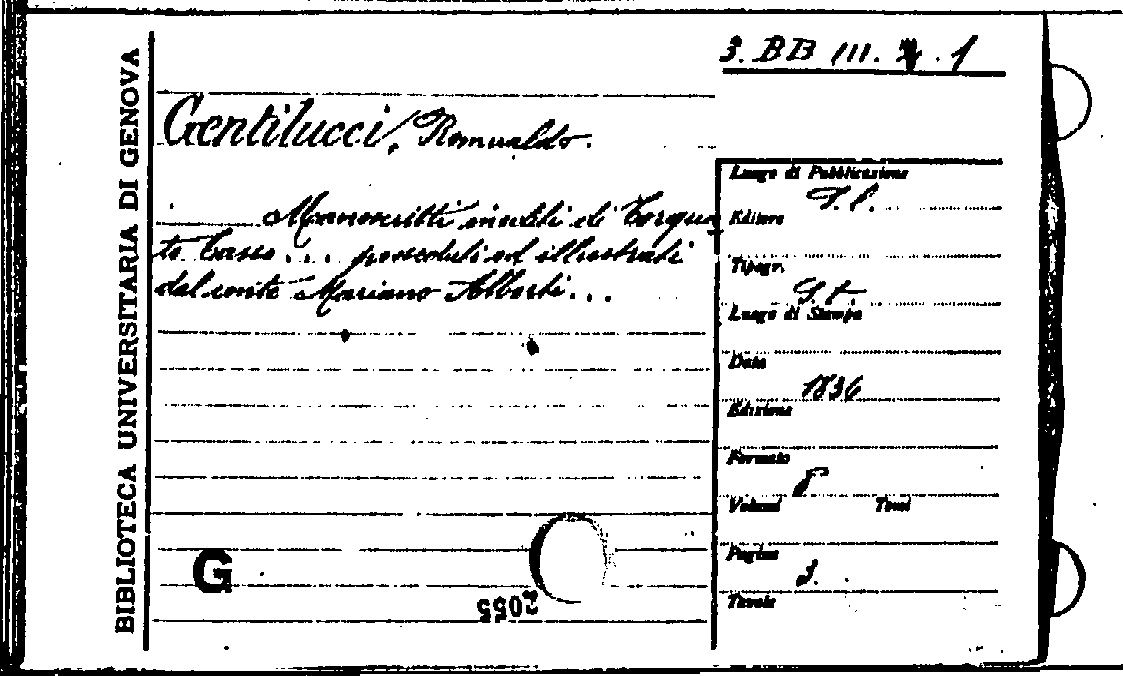 3. BB III. 4. 1
BIBLIOTECA UNIVERSITARIA DI GENOVA
Gentilucci, Romualdo.
Manoscritti inediti di Torqua
to Tasso... posseduti ed illustrati
dal conte Mariano Alberti...
Luogo di Pubblicazione
S. l.
Editore
Tipogr.
S. t.
Luogo di Stampa
Data
1836
Edizione
Formato
8
Volumi Tomi
Pagine
3.
Tavole
G
2055